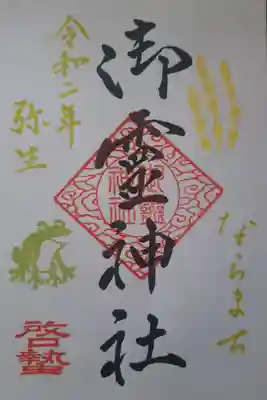 ならまち
御霊神社
令和二年
弥生
啓蟄